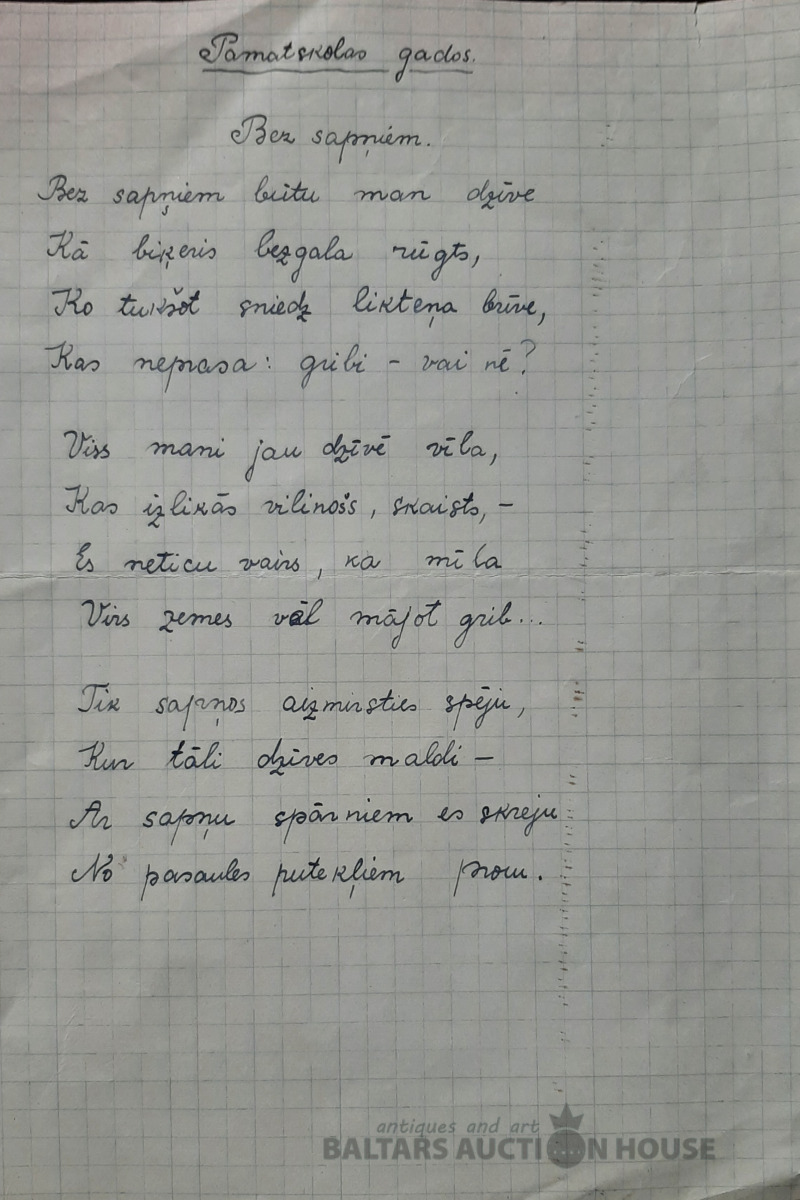 Pamatskolas gados.
Bez sapņiem.
Bez sapņiem būtu man dzīve
Kā biķeris bezgala rūgts,
Ko tukšot sniedz likteņa brīve,
Kas neprasa: gribi - vai nē?
Viss mani jau dzīvē vīla,
Kas izlikās vilinošs, skaists, -
Es neticu vairs, ka mīla
Virs zemes vēl mājot grib...
Tik sapņos aizmirsties spēju,
Kur tāli dzīves maldi -
Ar sapņu spārniem es skreju
No pasaules putekļiem prom.
antiques and art
BALTARS AUCTION HOUSE